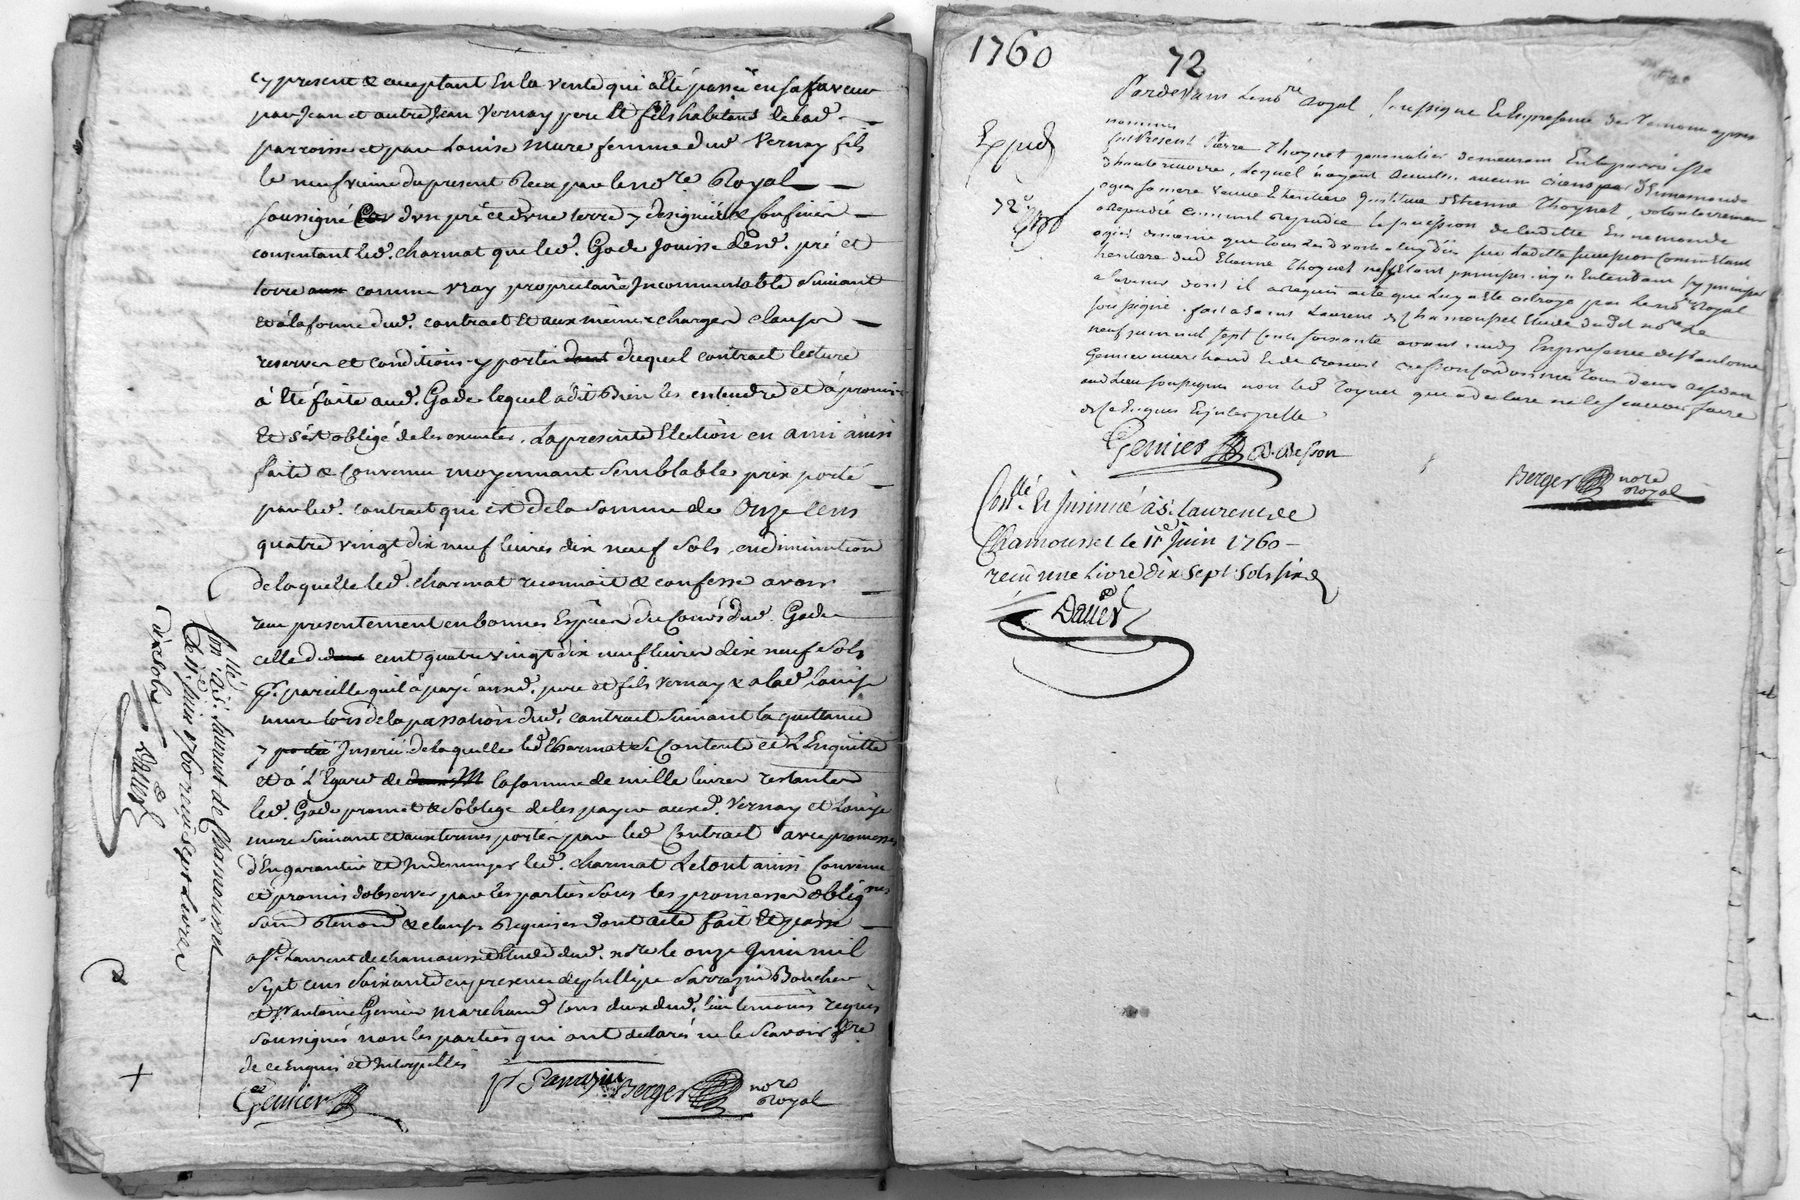 cy present & acceptant En la vente qui a Eté passée en sa faveur
par Jean et autre Jean Vernay pere Et fils habitant de lad.
parroisse et par Louise mure femme dud Vernay fils
le neuf du present Receu par le no.re Royal
soussigné d'un pré et d'une terre y designés & Confinés
consentant led. charmat que led. Gode Jouisse desd. pré et
terre comme vray proprietaire Incommutable suivant
et à la forme dud. contract Et aux mêmes charges clauses
reserves et conditions y portés duquel contract lecture
à Eté faite aud. Gode lequel a dit Bien les entendre et à promis
Et s'est obligé de les executer. La presente Election en ami ainsi
faite & Convenue moyennant semblable prix porté
par led. contract qui est de la somme de Onze Cens
quatre vingt dix neuf livres dix neuf sols, en diminution
de laquelle led. charmat reconnoit & confesse avoir
receu presentement en bonnes Espèces du Cours dud. Gode
celle de cent quatre vingt dix neuf livres dix neuf sols
pareille qu'il à payé auxd. pere et fils Vernay & a lad. Louise
mure lors de la passation dud. contract suivant la quittance
y Inserée de laquelle led Charmat se Contente et L'Enquitte
et à L'Egard de la somme de mille livres restantes
led. Gode promet & s'oblige de les payer auxd. Vernay et Louise
mure suivant et aux termes portés par led Contract avec promesse
d'En garantir et Indemniser led. charmat Le tout ainsi Convenu
et promis d'observer par les parties sous les promesses oblig.nes
& clauses Requises dont acte fait Et passé
a St. Laurent de chamousset Etude dud. no.re le onze Juin mil
sept cens soixante en presence de phillipe Sarrazin Boucher
et Sr antoine Genier marchand tous deux dud. lieu temoins requis
soussignés non les parties qui ont declaré ne le scavoir f.re
de ce Enquis et Interpellés
Genier
Sarrazin Berger no.re
Royal
Con.llé à St. Laurent de Chamousset
le 11e Juin 1760 receu sept Livres
dix sols
Daller
1760
72
Expédé
72e
Pardevant Le no.re Royal soussigné Et En presence des Temoins apres
nommés
fut Present Pierre Thoynet grenatier demeurant En la parroisse
d'hauterivoire, Lequel n'ayant aucun biens par d'Ennemonde
sa mere veuve Et heritiere d'Etienne Thoynet, volontairement
a Repudié comme il Repudie la succession de laditte Ennemonde
que tous les droits a luy dûs sur Ladite succession Comme Etant
heritiere dud Etienne Thoynet
a l'avenir dont il a Requis acte que Luy a Eté octroyé par Le no.re Royal
soussigné. fait a Saint Laurent de Chamousset Etude dud no.re Le
neuf juin mil sept cens soixante avant midy En presence de Sr antoine
Genier marchand Et de cordonnier Tous deux residant
aud Lieu soussignés non led Toynet qui a declaré ne le scavoir faire
de Ce Enquis Et interpellé
Genier
Berger no.re
Royal
Con.llé Et Insinué à St. Laurent de
Chamousset le 11e Juin 1760
receu une Livre dix sept sols six d
Daller